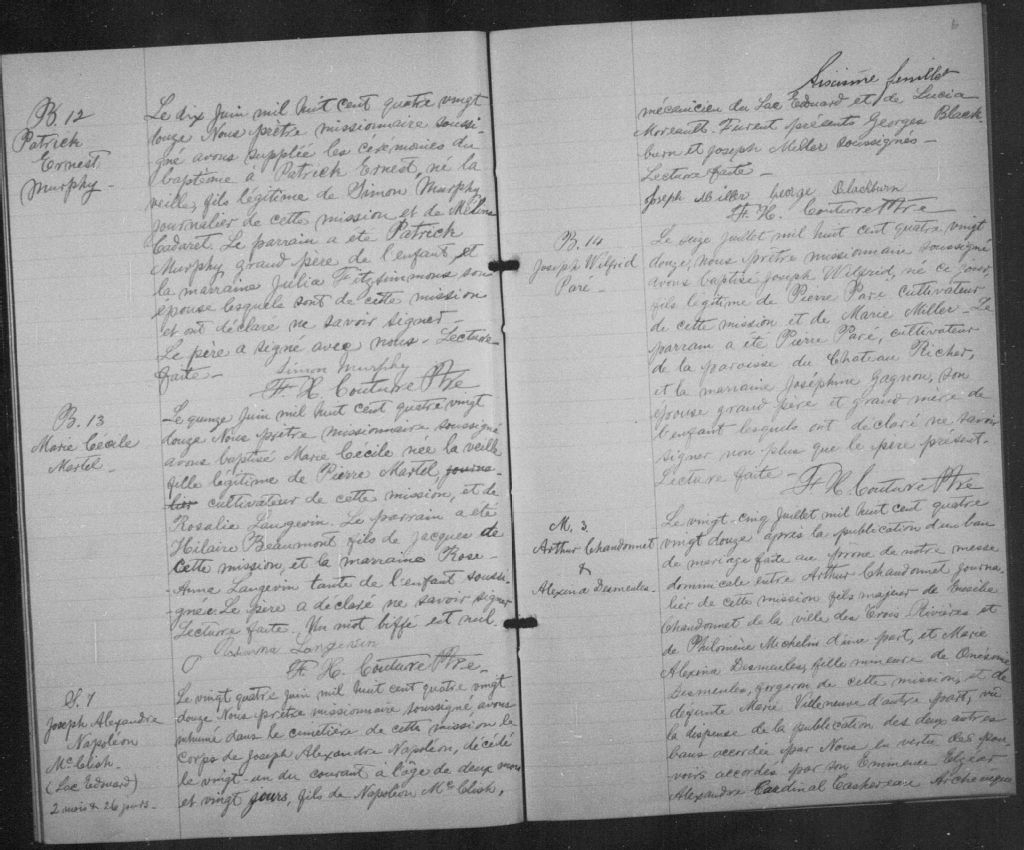 B 12
Patrick
Ernest
Murphy -
Le dix Juin mil huit cent quatre vingt
douze Nous prêtre missionnaire soussi-
gné avons suppléé les cérémonies du
baptême à Patrick Ernest, né la
veille, fils légitime de Simon Murphy
journalier de cette mission et de Mélina
Cadaret. Le parrain a été Patrick
Murphy, grand père de l'enfant, et
la marraine Julia Fitzsimmons son
épouse lesquels sont de cette mission
et ont déclaré ne savoir signer -
Le père a signé avec nous - Lecture
faite -
Simon Murphy
F. X. Couture Ptre
B. 13
Marie Cécile
Martel -
Le quinze Juin mil huit cent quatre vingt
douze Nous prêtre missionnaire soussigné
avons baptisé Marie Cécile née la veille
fille légitime de Pierre Martel, journa-
lier cultivateur de cette mission, et de
Rosalie Langevin. Le parrain a été
Hilaire Beaumont fils de Jacques de
cette mission, et la marraine Rose-
Anna Langevin tante de l'enfant soussi-
gnée. Le père a déclaré ne savoir signer
Lecture faite. Un mot biffé est nul.
Langevin
F. X. Couture Ptre -
S. 7
Joseph Alexandre
Napoléon
McClish -
(Lac Edward)
2 mois & 26 jours -
Le vingt quatre Juin mil huit cent quatre vingt
douze Nous prêtre missionnaire soussigné, avons
inhumé dans le cimetière de cette mission le
corps de Joseph Alexandre Napoléon, décédé
le vingt-un du courant à l'âge de deux mois
et vingt jours, fils de Napoléon McClish,
6
Sixième feuillet
mécanicien du Lac Edouard et de Lucia
Moreault. Furent présents Georges Black-
burn et Joseph Miller soussignés -
Lecture faite -
Joseph Miller George Blackburn
F. X. Couture Ptre
B. 14
Joseph Wilfrid
Paré -
Le seize Juillet mil huit cent quatre vingt
douze, nous prêtre missionnaire soussigné
avons baptisé Joseph Wilfrid, né ce jour,
fils légitime de Pierre Paré cultivateur
de cette mission et de Marie Miller - Le
parrain a été Pierre Paré, cultivateur
de la paroisse du Château Richer,
et la marraine Joséphine Gagnon, son
épouse grand père et grand mère de
l'enfant lesquels ont déclaré ne savoir
signer non plus que le père présent -
Lecture faite -
F. X. Couture Ptre
M. 3.
Arthur Chandonnet
&
Alexina Desmeules -
Le vingt-cinq Juillet mil huit cent quatre
vingt douze après la publication d'un ban
de mariage faite au prône de notre messe
dominicale entre Arthur Chandonnet journa-
lier de cette mission fils majeur de
Chandonnet de la ville des Trois-Rivières et
de Philomène Michelin d'une part, et Marie
Alexina Desmeules, fille mineure de Onésime
Desmeules, forgeron de cette mission, et de
défunte Marie Villeneuve d'autre part, vu
la dispense de la publication des deux autres
bans accordée par Nous en vertu des pou-
voirs accordés par son Eminence Elzéar
Alexandre Cardinal Taschereau Archevêque